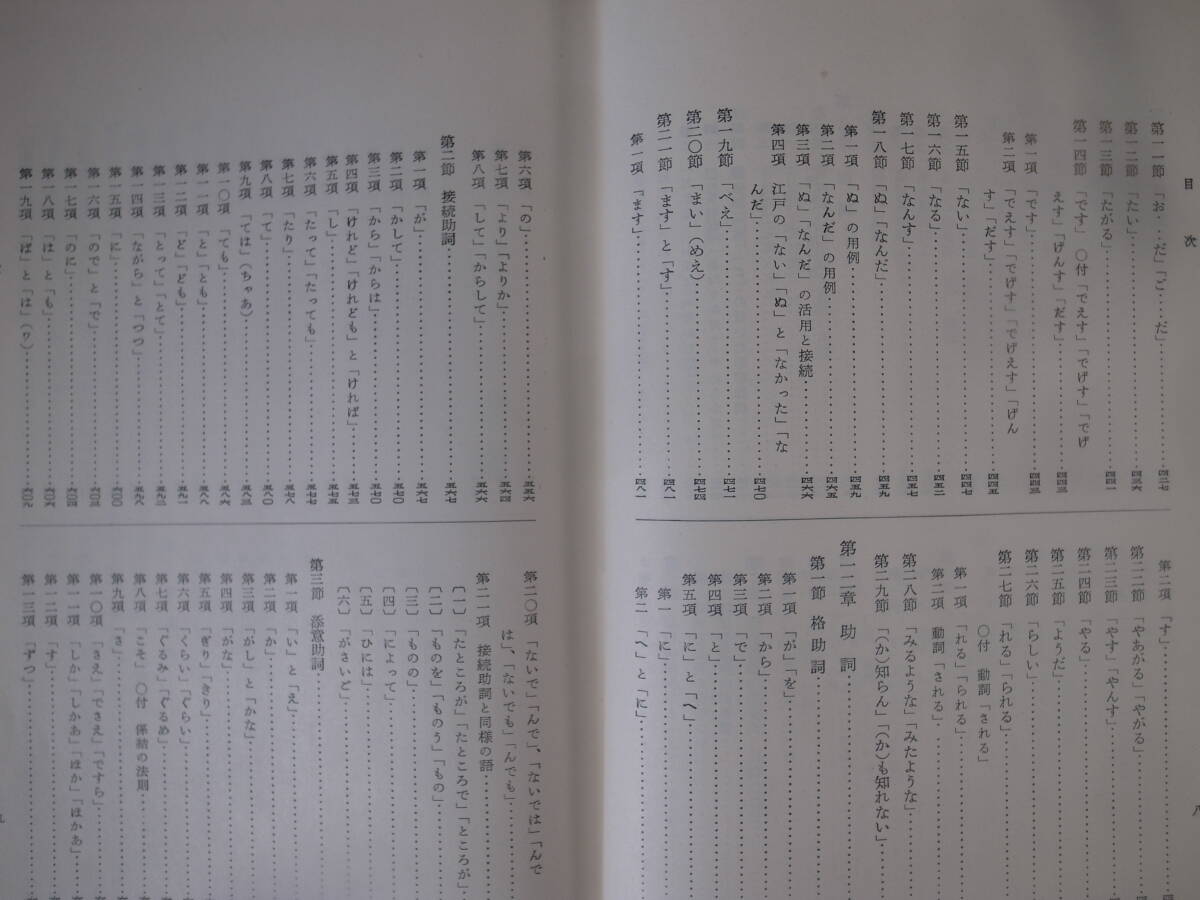 目次
第一一節「お…だ」「ご…だ」……四二七
第一二節「たい」……四三六
第一三節「たがる」……四四一
第一四節「です」 〇付「でえす」「でげす」「でげ
えす」「げんす」「だす」……四四三
第一項「です」……四四三
第二項「でえす」「でげす」「でげえす」「げん
す」「だす」……四四五
第一五節「ない」……四四七
第一六節「なる」……四五二
第一七節「なんす」……四五七
第一八節「ぬ」「なんだ」……四五九
第一項「ぬ」の用例……四五九
第二項「なんだ」の用例……四六五
第三項「ぬ」「なんだ」の活用と接続……四六六
第四項 江戸の「ない」「ぬ」と「なかった」「な
んだ」……四七〇
第一九節「べえ」……四七一
第二〇節「まい」(めえ)……四七四
第二一節「ます」と「す」……四八一
第一項「ます」……四八一
第二項「す」……
第二二節「やあがる」「やがる」……
第二三節「やす」「やんす」……
第二四節「やる」……
第二五節「ようだ」……
第二六節「らしい」……
第二七節「れる」「られる」……
〇付 動詞「される」
第一項「れる」「られる」……
第二項 動詞「される」……
第二八節「みるような」「みたような」……
第二九節「(か)知らん」「(か)も知れない」……
第一二章 助詞……
第一節 格助詞……
第一項「が」「を」……
第二項「から」……
第三項「で」……
第四項「と」……
第五項「に」と「へ」……
第一「に」……
第二「へ」と「に」……
八
第六項「の」……五五六
第七項「より」「よりか」……五六四
第八項「して」「からして」……五六六
第二節 接続助詞……五六七
第一項「が」……五六七
第二項「かして」……五七〇
第三項「から」「からは」……五七〇
第四項「けれど」「けれども」と「ければ」……五七三
第五項「し」……五七五
第六項「たって」「たっても」……五七七
第七項「たり」……五七八
第八項「て」……五八〇
第九項「ては」(ちゃあ)……五八三
第一〇項「ても」……五八六
第一一項「と」「とも」……五八八
第一二項「ど」「ども」……五九一
第一三項「とって」「とて」……五九三
第一四項「ながら」と「つつ」……五九八
第一五項「に」……六〇〇
第一六項「ので」と「で」……六〇三
第一七項「のに」……六〇四
第一八項「は」と「も」……六〇六
第一九項「ば」と「は」(ワ)……六〇九
第二〇項「ないで」「んで」、「ないでは」「んで
は」、「ないでも」「んでも」……
第二一項 接続助詞と同様の語……
〔一〕「たところが」「たところで」「ところが」……
〔二〕「ものを」「ものう」「もの」……
〔三〕「ものの」……
〔四〕「によって」……
〔五〕「ひには」……
〔六〕「がさいど」……
第三節 添意助詞……
第一項「い」と「え」……
第二項「か」……
第三項「がし」と「かな」……
第四項「がな」……
第五項「ぎり」「きり」……
第六項「くらい」「ぐらい」……
第七項「ぐるみ」「ぐるめ」……
第八項「こそ」 〇付 係結の法則……
第九項「さ」……
第一〇項「さえ」「でさえ」「ですら」……
第一一項「しか」「しかあ」「ほか」「ほかあ」……
第一二項「す」……
第一三項「ずつ」……
九